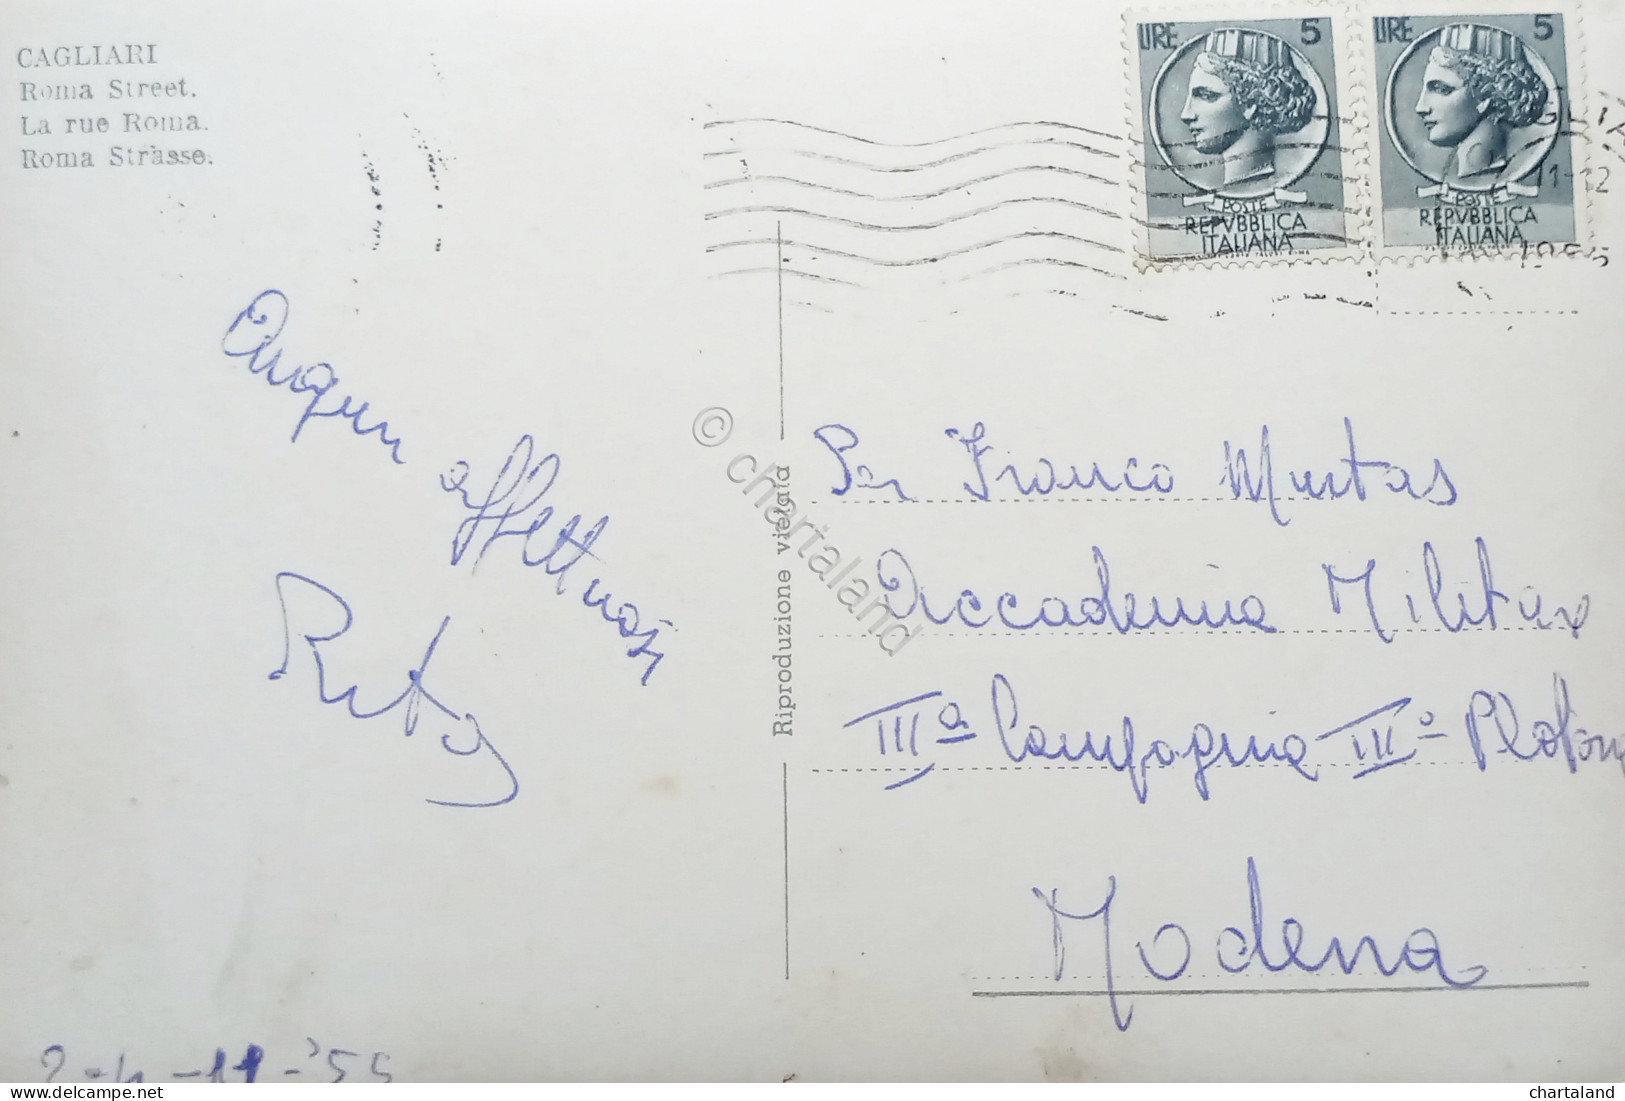 CAGLIARI
Roma Street.
La rue Roma.
Roma Strasse.
LIRE 5
POSTE
REPVBBLICA
ITALIANA
LIRE 5
POSTE
REPVBBLICA
ITALIANA
11-12
1955
Auguri
affettuosi
Rita
Riproduzione vietata
Per Franco Murtas
Accademia Militar
IIIª Compagnia IIIº Plotone
Modena
-11-'55
© chartaland
chartaland